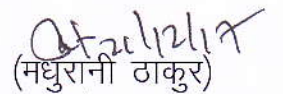 21/12/17
(मधुरानी ठाकुर)